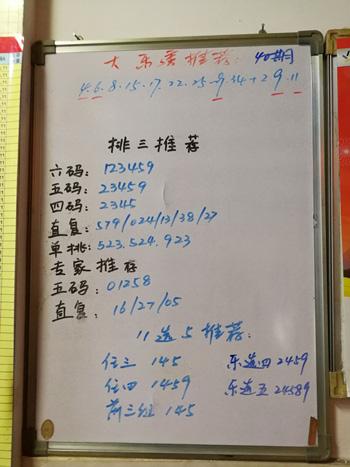 大乐透推荐: 40期
4.6.8.15.17.22.25.9.34+2 9.11
排三推荐
六码: 123459
五码: 23459
四码: 2345
直复: 579/024/13/38/27
单挑: 523.524.923
专家推荐
五码: 01258
直复: 16/27/05
11选5推荐:
任三 145 乐选四 2459
任四 1459 乐选五 24589
前三组 145